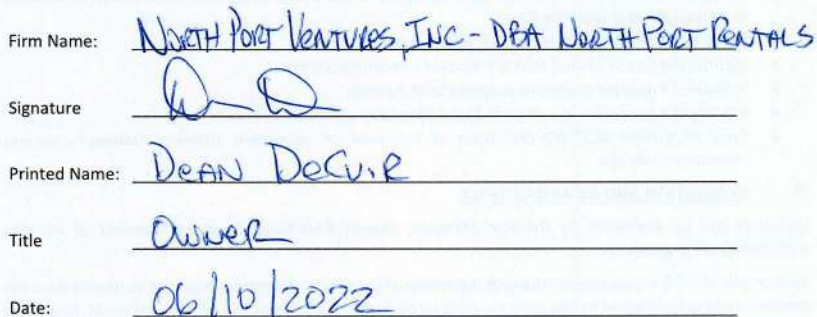 Firm Name: NORTH PORT VENTURES, INC - DBA NORTH PORT RENTALS
Signature
Printed Name: DEAN DECUIR
Title OWNER
Date: 06/10/2022